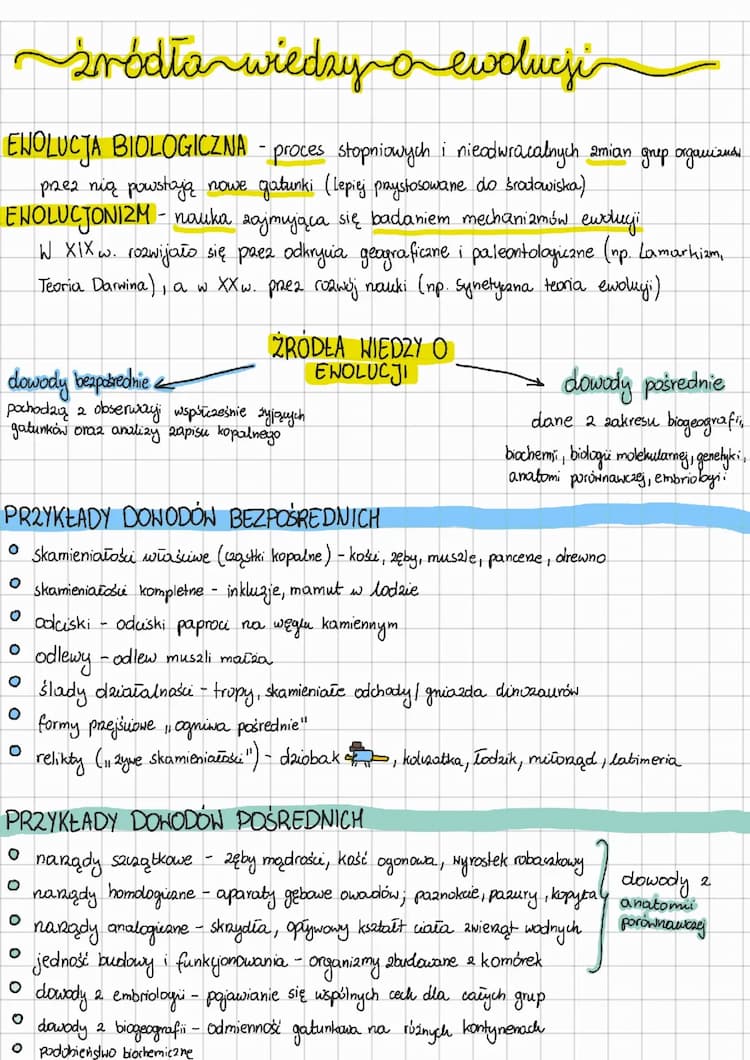 źródła wiedzy o ewolucji
EWOLUCJA BIOLOGICZNA - proces stopniowych i nieodwracalnych zmian grup organizmów
przez nią powstają nowe gatunki (lepiej przystosowane do środowiska)
EWOLUCJONIZM - nauka zajmująca się badaniem mechanizmów ewolucji
W XIX w. rozwijało się przez odkrycia geograficzne i paleontologiczne (np. Lamarkizm,
Teoria Darwina), a w XX w. przez rozwój nauki (np. Synetyczna teoria ewolucji)
ŹRÓDŁA WIEDZY O
EWOLUCJI
dowody bezpośrednie
pochodzą z obserwacji współcześnie żyjących
gatunków oraz analizy zapisu kopalnego
dowody pośrednie
dane z zakresu biogeografii,
biochemi, biologii molekularnej, genetyki,
anatomi porównawczej, embriologii
PRZYKŁADY DOWODÓW BEZPOŚREDNICH
skamieniałości właściwe (cząstki kopalne) - kości, zęby, muszle, pancerze, drewno
skamieniałości kompletne - inkluzje, mamut w lodzie
odciski - odciski paproci na węglu kamiennym
odlewy - odlew muszli małża
ślady działalności - tropy, skamieniałe odchody / gniazda dinozaurów
formy przejściowe "ogniwa pośrednie"
relikty ("żywe skamieniałości") - dziobak, kolczatka, łodzik, miłorząd, latimeria
PRZYKŁADY DOWODÓW POŚREDNICH
narządy szczątkowe - zęby mądrości, kość ogonowa, wyrostek robaczkowy
narządy homologiczne - aparaty gębowe owadów; paznokcie, pazury, kopyta
narządy analogiczne - skrzydła, opływowy kształt ciała zwierząt wodnych
jedność budowy i funkcjonowania - organizmy zbudowane z komórek
dowody z
anatomii
porównawczej
dowody z embriologii - pojawianie się wspólnych cech dla całych grup
dowody z biogeografii - odmienność gatunkowa na różnych kontynenach
podobieństwo biochemiczne